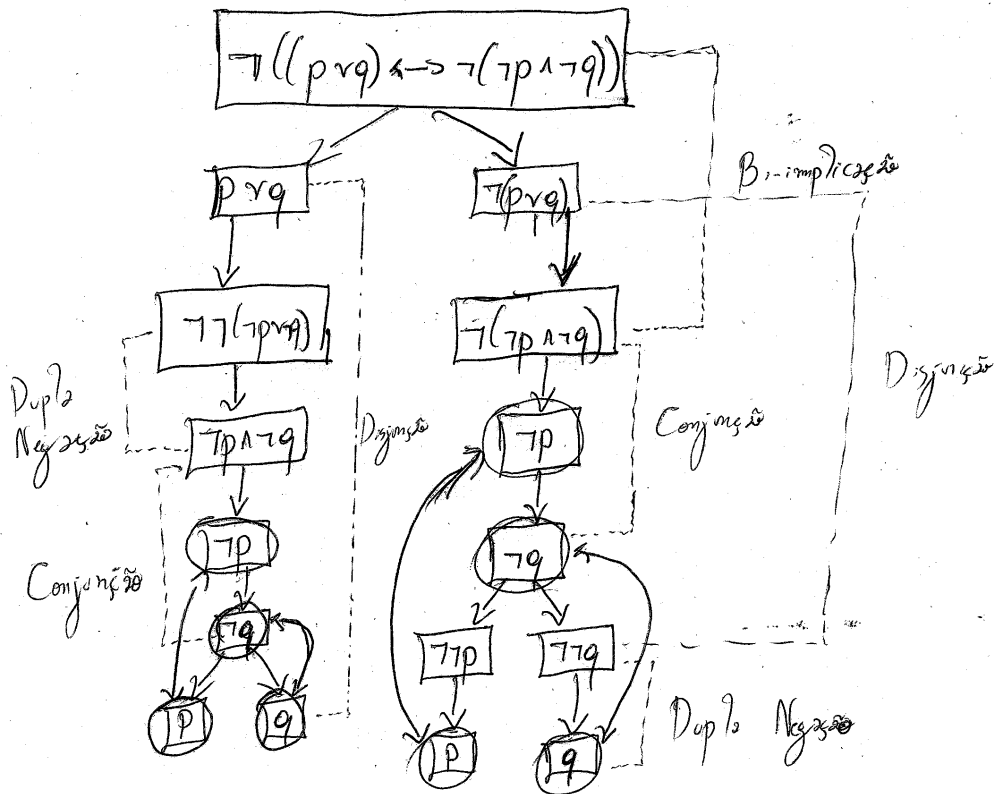 ¬((p∨q)<->¬(¬p∧¬q))
p∨q
¬(p∨q)
Bi-implicação
¬¬(¬p∨¬q)
¬(¬p∧¬q)
Dupla
Negação
Disjunção
Disjunção
Conjunção
¬p∧¬q
¬p
¬p
¬q
Conjunção
¬q
¬¬p
¬¬q
p
q
p
q
Dupla Negação